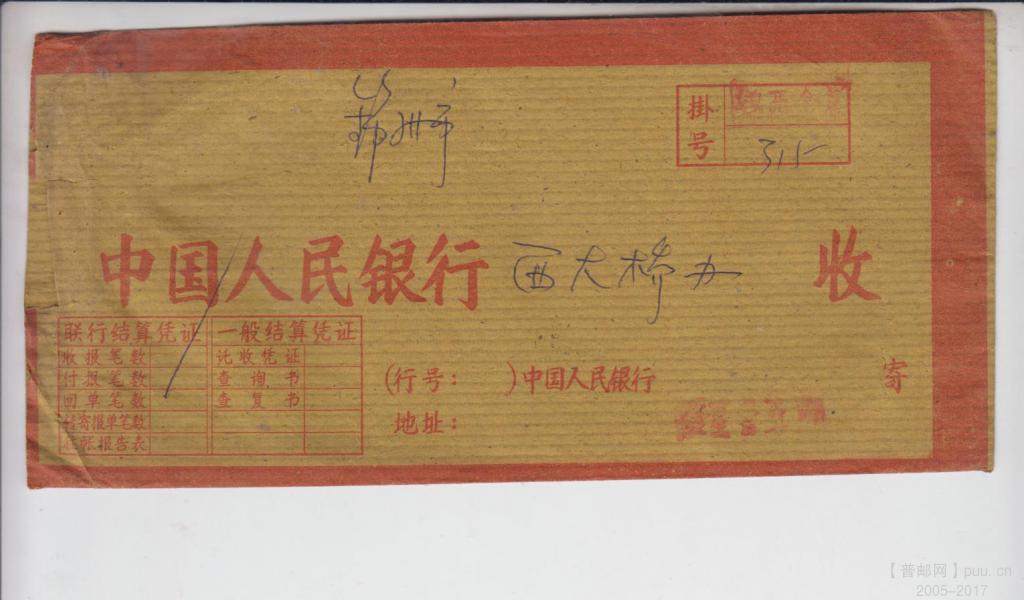 州市
掛号
315
中国人民银行 西大桥办 收
联行结算凭证 一般结算凭证
收报笔数 托收凭证
付报笔数 查询书
回单笔数 查复书
寄报单笔数
帐报告表
(行号: )中国人民银行 寄
地址:
【普邮网】puu.cn
2005-2017